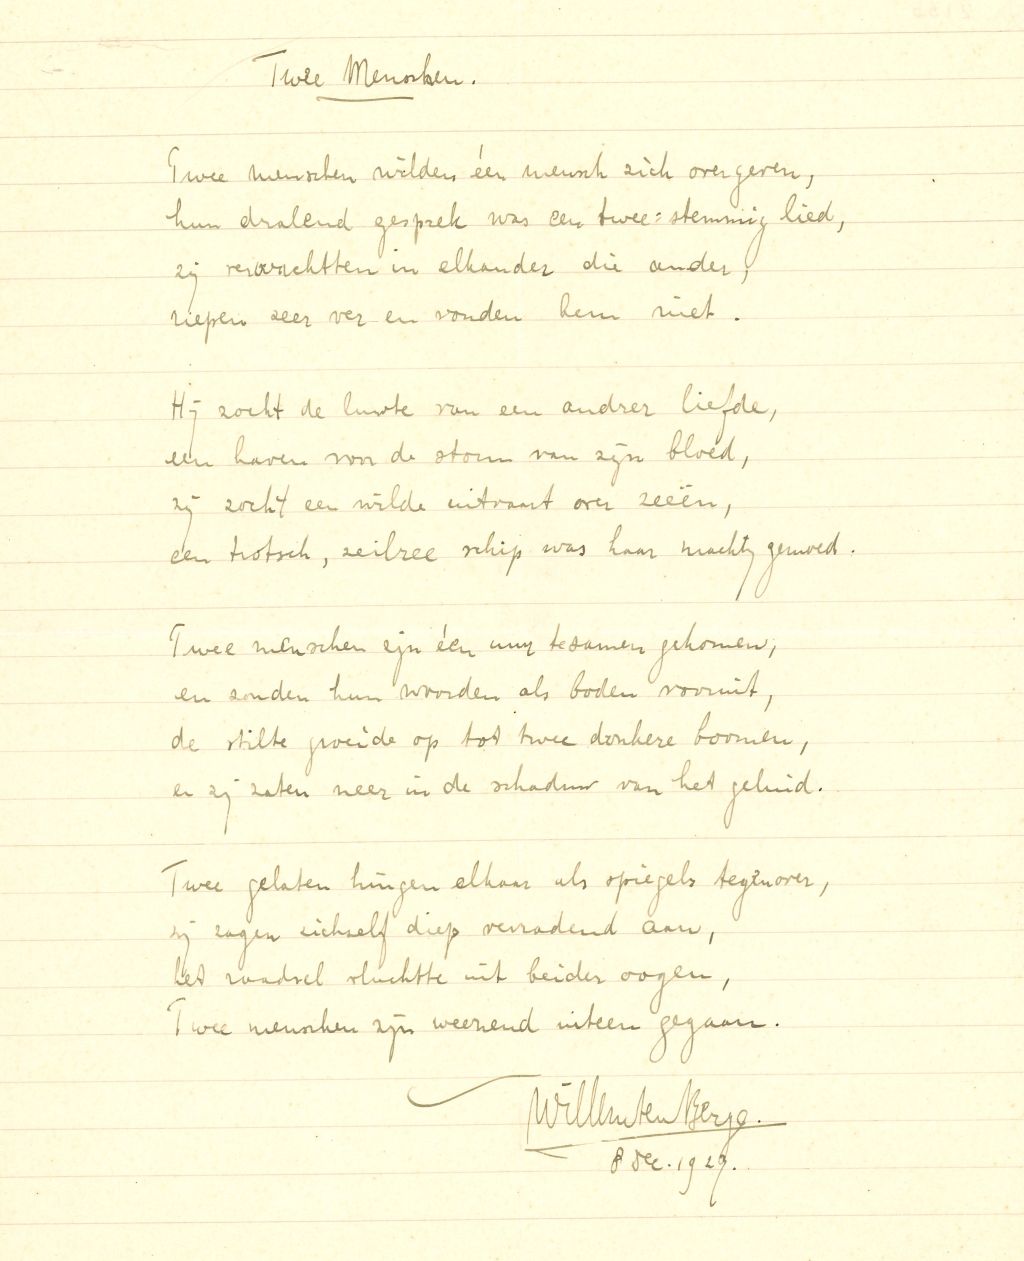 Twee Menschen.
Twee menschen wilden één mensch zich overgeven,
hun dralend gesprek was een twee=stemmig lied,
zij verwachtten in elkander die ander,
riepen zeer ver en vonden hem niet.
Hij zocht de luwte van een andrer liefde,
een haven voor de storm van zijn bloed,
zij zocht een wilde uitvaart over zeeën,
een trotsch, zeilree schip was haar machtig gemoed.
Twee menschen zijn één uur tezamen gekomen,
en zonden hun woorden als boden vooruit,
de stilte groeide op tot twee donkere boomen,
en zij zaten neer in de schaduw van het geluid.
Twee gelaten hingen elkaar als spiegels tegenover,
zij zagen zichzelf diep verradend aan,
het raadsel vluchtte uit beider oogen,
Twee menschen zijn weenend uiteen gegaan.
Willem ten Berge.
8 Dec. 1929.